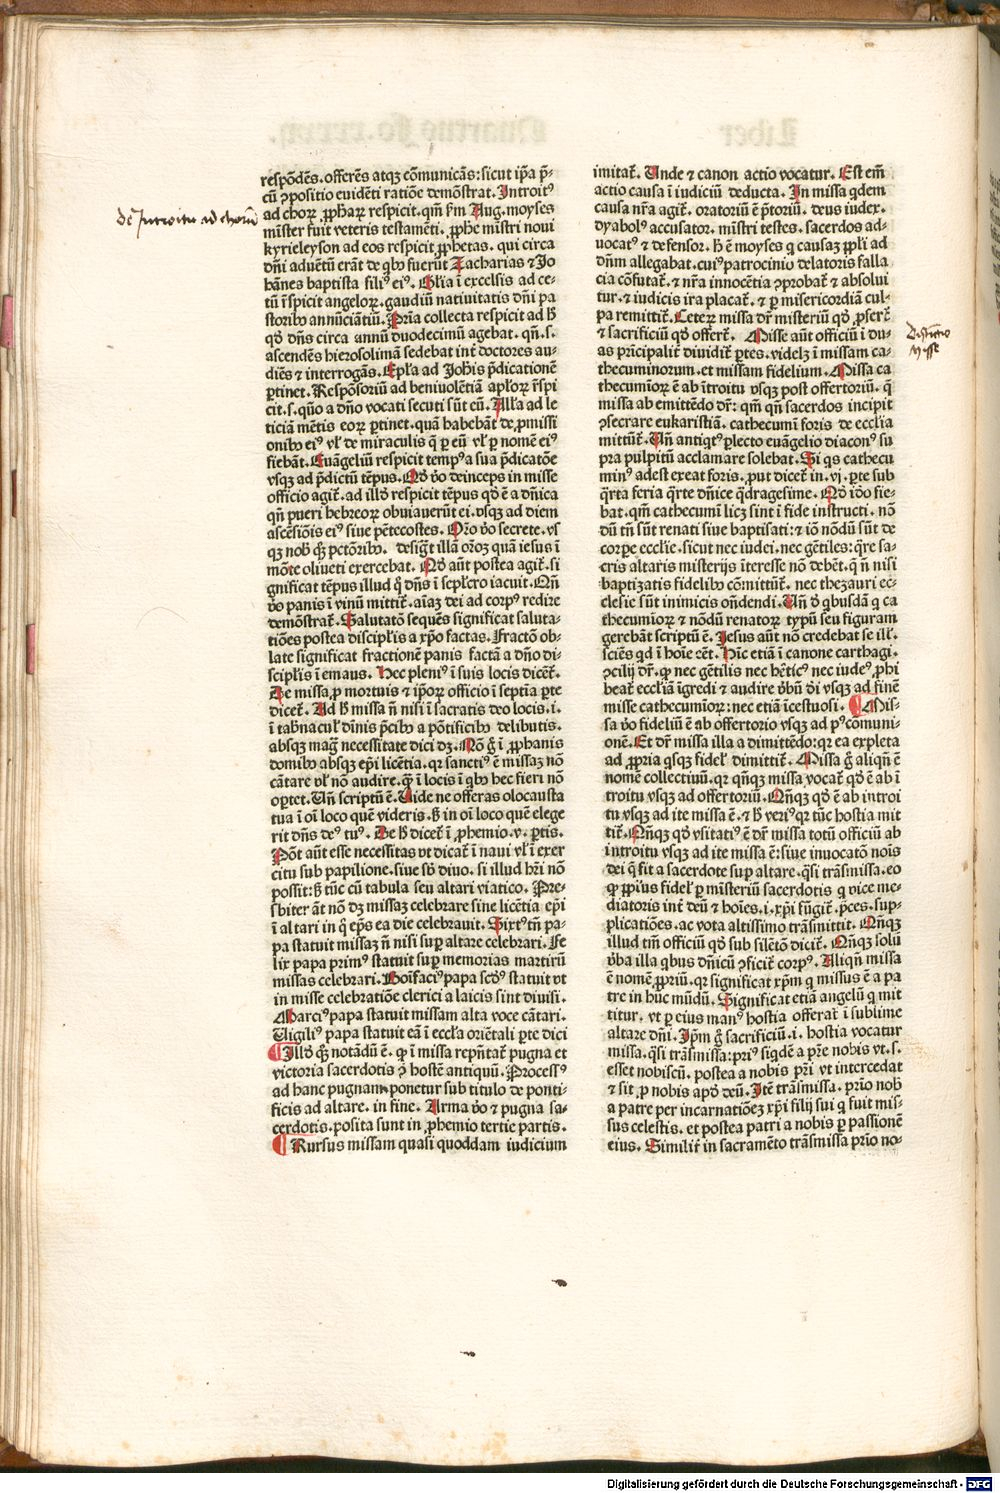 respōdēs. offerēs atqꝫ cōmunicās: sicut ip̄a p̄-
cū ꝯpositio euidēti ratiōe demōstrat. Introitꝰ
ad choꝝ ꝓphaꝝ respicit. qm̄ s̄m Aug. moyses
mīster fuit veteris testamēti. ꝓphe mīstri noui
kyrieleyson ad eos respicit ꝓphetas. qui circa
dn̄i aduētū erāt de qꝰ fuerūt Zacharias ⁊ Jo
hānes baptista filiꝰ eiꝰ. Gl̄ia ī excelsis ad ce-
tū īspicit angeloꝝ. gaudiū natiuitatis dn̄i pa
storibꝰ annūciātiū. Prīa collecta respicit ad h̄
qð dn̄s circa annū duodecimū agebat. qn̄. s.
ascendēs hierosolimā sedebat int̄ doctores au-
diēs ⁊ interrogās. Ep̄la ad Joh̄is p̄dicationē
ꝑtinet. Respōsoriū ad beniuolētiā ap̄loꝝ r̄spi
cit. s. qn̄o a dn̄o vocati secuti sūt eū. All̄a ad le
ticiā mētis eoꝝ ꝑtinet. quā habebāt de ꝓmissi
onibꝰ eiꝰ vl̄ de miraculis q̄ ꝑ eū vl̄ ꝑ nomē eiꝰ
fiebāt. Euāgeliū respicit tempꝰ a sua p̄dicatōe
vsqꝫ ad p̄dictū tēpus. Qð v̄o deinceps in misse
officio agit̄. ad illð respicit tēpus qð ē a dn̄ica
qn̄ pueri hebreoꝝ obuiauerūt ei. vsqꝫ ad diem
ascēsiōis eiꝰ siue pētecostes. Or̄o v̄o secrete. vs
qꝫ nob̄ q̄ꝫ pctōribꝰ. desigt̄ illā or̄oꝫ quā iesus ī
mōte oliueti exercebat. Qð aūt postea agit̄. si
gnificat tēpus illud q̄ dn̄s ī sepl̄cro iacuit. Qn̄
v̄o panis ī vinū mittit̄. aīaꝫ dei ad corpꝰ redire
demōstrat̄. Salutatō sequēs significat saluta-
tiōes postea discip̄lis a xp̄o factas. Fractō ob-
late significat fractionē panis factā a dn̄o di-
scip̄lis ī emaus. Hec pleniꝰ ī suis locis dicēt̄.
De missa ꝓ mortuis ⁊ ip̄oꝝ officio ī septīa ꝑte
dicet̄. Ad h̄ missa n̄ nisi ī sacratis deo locis. i.
ī tab̄nacul̄ dīnis p̄cibꝰ a pōtificibꝰ delibutis.
absqꝫ maḡ necessitate dici dꝫ. Nō ḡ ī ꝓphanis
domibꝰ absqꝫ ep̄i licētia. qr sanctiꝰ ē missaꝫ nō
cātare vl̄ nō audire. q̄ ī locis ī qbꝰ hec fieri nō
optet. Vn̄ scriptū ē. Vide ne offeras olocausta
tua ī oī loco quē videris. s̄ in oī loco quē elege
rit dn̄s deꝰ tuꝰ. De h̄ dicet̄ ī ꝓhemio. v. ꝑtis.
Pōt aūt esse necessitas vt dicat̄ ī naui vl̄ ī exer
citu sub papilione. siue sb̄ diuo. si illud hr̄i nō
possit: s̄ tūc cū tabula seu altari viatico. Pre-
sbiter āt nō dꝫ missaꝫ celebrare sine licētia ep̄i
ī altari in q̄ ep̄s ea die celebrauit. Sixtꝰ tn̄ pa-
pa statuit missaꝫ n̄ nisi suꝑ altare celebrari. Fe
lix papa primꝰ statuit suꝑ memorias martirū
missas celebrari. Bonifaciꝰ papa sc̄dꝰ statuit vt
in misse celebratiōe clerici a laicis sint diuisi.
Marciꝰ papa statuit missam alta voce cātari.
Vigiliꝰ papa statuit eā ī eccl̄a oriētali ꝑte dici
¶ Illð q̄ꝫ notādū ē. ꝙ ī missa rep̄ntat̄ pugna et
victoria sacerdotis ꝯ̄ hostē antiquū. Processꝰ
ad hanc pugnam ponetur sub titulo de ponti-
ficis ad altare. in fine. Arma v̄o ⁊ pugna sa-
cerdotis. posita sunt in ꝓhemio tertie partis.
¶ Rursus missam quasi quoddam iudicium
imitat̄. Unde ⁊ canon actio vocatur. Est em̄
actio causa ī iudiciū deducta. In missa qdem
causa nr̄a agit̄. oratoriū ē p̄toriū. deus iudex.
dyabolꝰ accusator. mīstri testes. sacerdos ad-
uocatꝰ ⁊ defensor. h̄ ē moyses q causaꝫ ꝓpl̄i ad
dn̄m allegabat. cuiꝰ patrocinio delatoris falla
cia cōfutat̄. ⁊ nr̄a innocētia ꝯprobat̄ ⁊ absolui
tur. ⁊ iudicis ira placat̄. ⁊ ꝑ misericordiā cul-
pa remittit̄. Ceteꝝ missa dr̄ misteriū qð ꝓfert̄
⁊ sacrificiū qð offert̄. Misse aūt officiū ī du-
as prīcipalit̄ diuidit̄ ꝑtes. videlꝫ ī missam ca-
thecuminorum. et missam fidelium. Missa ca
thecumioꝝ ē ab ītroitu vsqꝫ post offertoriū. q̄
missa ab emittēdo dr̄: qm̄ qn̄ sacerdos incipit
ꝯsecrare eukaristiā. cathecumī foris de ecclīa
mittūt̄. Un̄ antiqtꝰ ꝑlecto euāgelio diaconꝰ su
pra pulpitū acclamare solebat. Si qs cathecu
minꝰ adest exeat foris. put dicet̄ in. vj. ꝑte sub
q̄rta feria q̄rte dn̄ice q̄dragesime. Qð īð̄o fie-
bat. qm̄ cathecumī licꝫ sint ī fide instructi. nō
dū tn̄ sūt renati siue baptisati: ⁊ iō nōdū sūt de
corꝑe ecclie. sicut nec iudei. nec gētiles: qr̄e sa-
cris altaris misterijs īteresse nō debēt. q̄ n̄ nisi
baptizatis fidelibꝰ cōmittūt̄. nec thezauri ec-
clesie sūt inimicis on̄dendi. Un̄ ð qbusdā q ca
thecumioꝝ ⁊ nōdū renatoꝝ typū seu figuram
gerebāt scriptū ē. Jesus aūt nō credebat se ill̄.
sciēs qd ī hoīe eēt. Hīc etiā ī canone carthagī.
ꝯcilij dr̄. ꝙ nec gētilis nec hēticꝰ nec iudeꝰ ꝓhi
beat̄ ecclīā īgredi ⁊ audire v̄bū dī vsqꝫ ad finē
misse cathecumioꝝ: nec etiā īcestuosi. ¶ Mis-
sa v̄o fideliū ē ab offertorio vsqꝫ ad pꝰcomuni-
onē. Et dr̄ missa illa a dimittēdo: qr ea expleta
ad ꝓpria qsqꝫ fidel̄ dimittit̄. Missa ḡ aliqn̄ ē
nomē collectiuū. qr qn̄qꝫ missa vocat̄ qð ē ab ī
troitu vsqꝫ ad offertoriū. Qn̄qꝫ qð ē ab introi
tu vsqꝫ ad ite missa ē. ⁊ h̄ veriꝰ qr tūc hostia mit
tit̄. Qn̄qꝫ qð vsitatiꝰ ē dr̄ missa totū officiū ab
introitu vsqꝫ ad ite missa ē: siue inuocatō noīs
dei q̄ fit a sacerdote suꝑ altare. qsi trāsmissa. eo
ꝙ ꝓpiꝰ fidel̄ ꝑ mīsteriū sacerdotis q vice me-
diatoris int̄ deū ⁊ hoīes. i. xp̄i fūgit̄. p̄ces. sup-
plicatiōes. ac vota altissimo trāsmittit. Qn̄qꝫ
illud tm̄ officiū qð sub silētō dicit̄. Qn̄qꝫ solū
v̄ba illa qbus dn̄icū ꝯficit̄ corpꝰ. Aliqn̄ missa
ē nomē ꝓpriū. qr significat xp̄m q missus ē a pa
tre in hūc mūdū. Significat etiā angelū q mit
titur. vt ꝑ eius manꝰ hostia offerat̄ ī sublime
altare dn̄i. Ip̄m g̊ sacrificiū. i. hostia vocatur
missa. qsi trāsmissa: priꝰ siqdē a pr̄e nobis vt. s.
esset nobiscū. postea a nobis pr̄i vt intercedat
⁊ sit ꝓ nobis apð deū. Itē trāsmissa. prīo nob̄
a patre per incarnatiōeꝫ xp̄i filij sui q fuit mis-
sus celestis. et postea patri a nobis ꝑ passionē
eius. Similit̄ in sacramēto trāsmissa prīo no-
de Introitu ad chorū
Distinctio
Misse
Digitalisierung gefördert durch die Deutsche Forschungsgemeinschaft - DFG